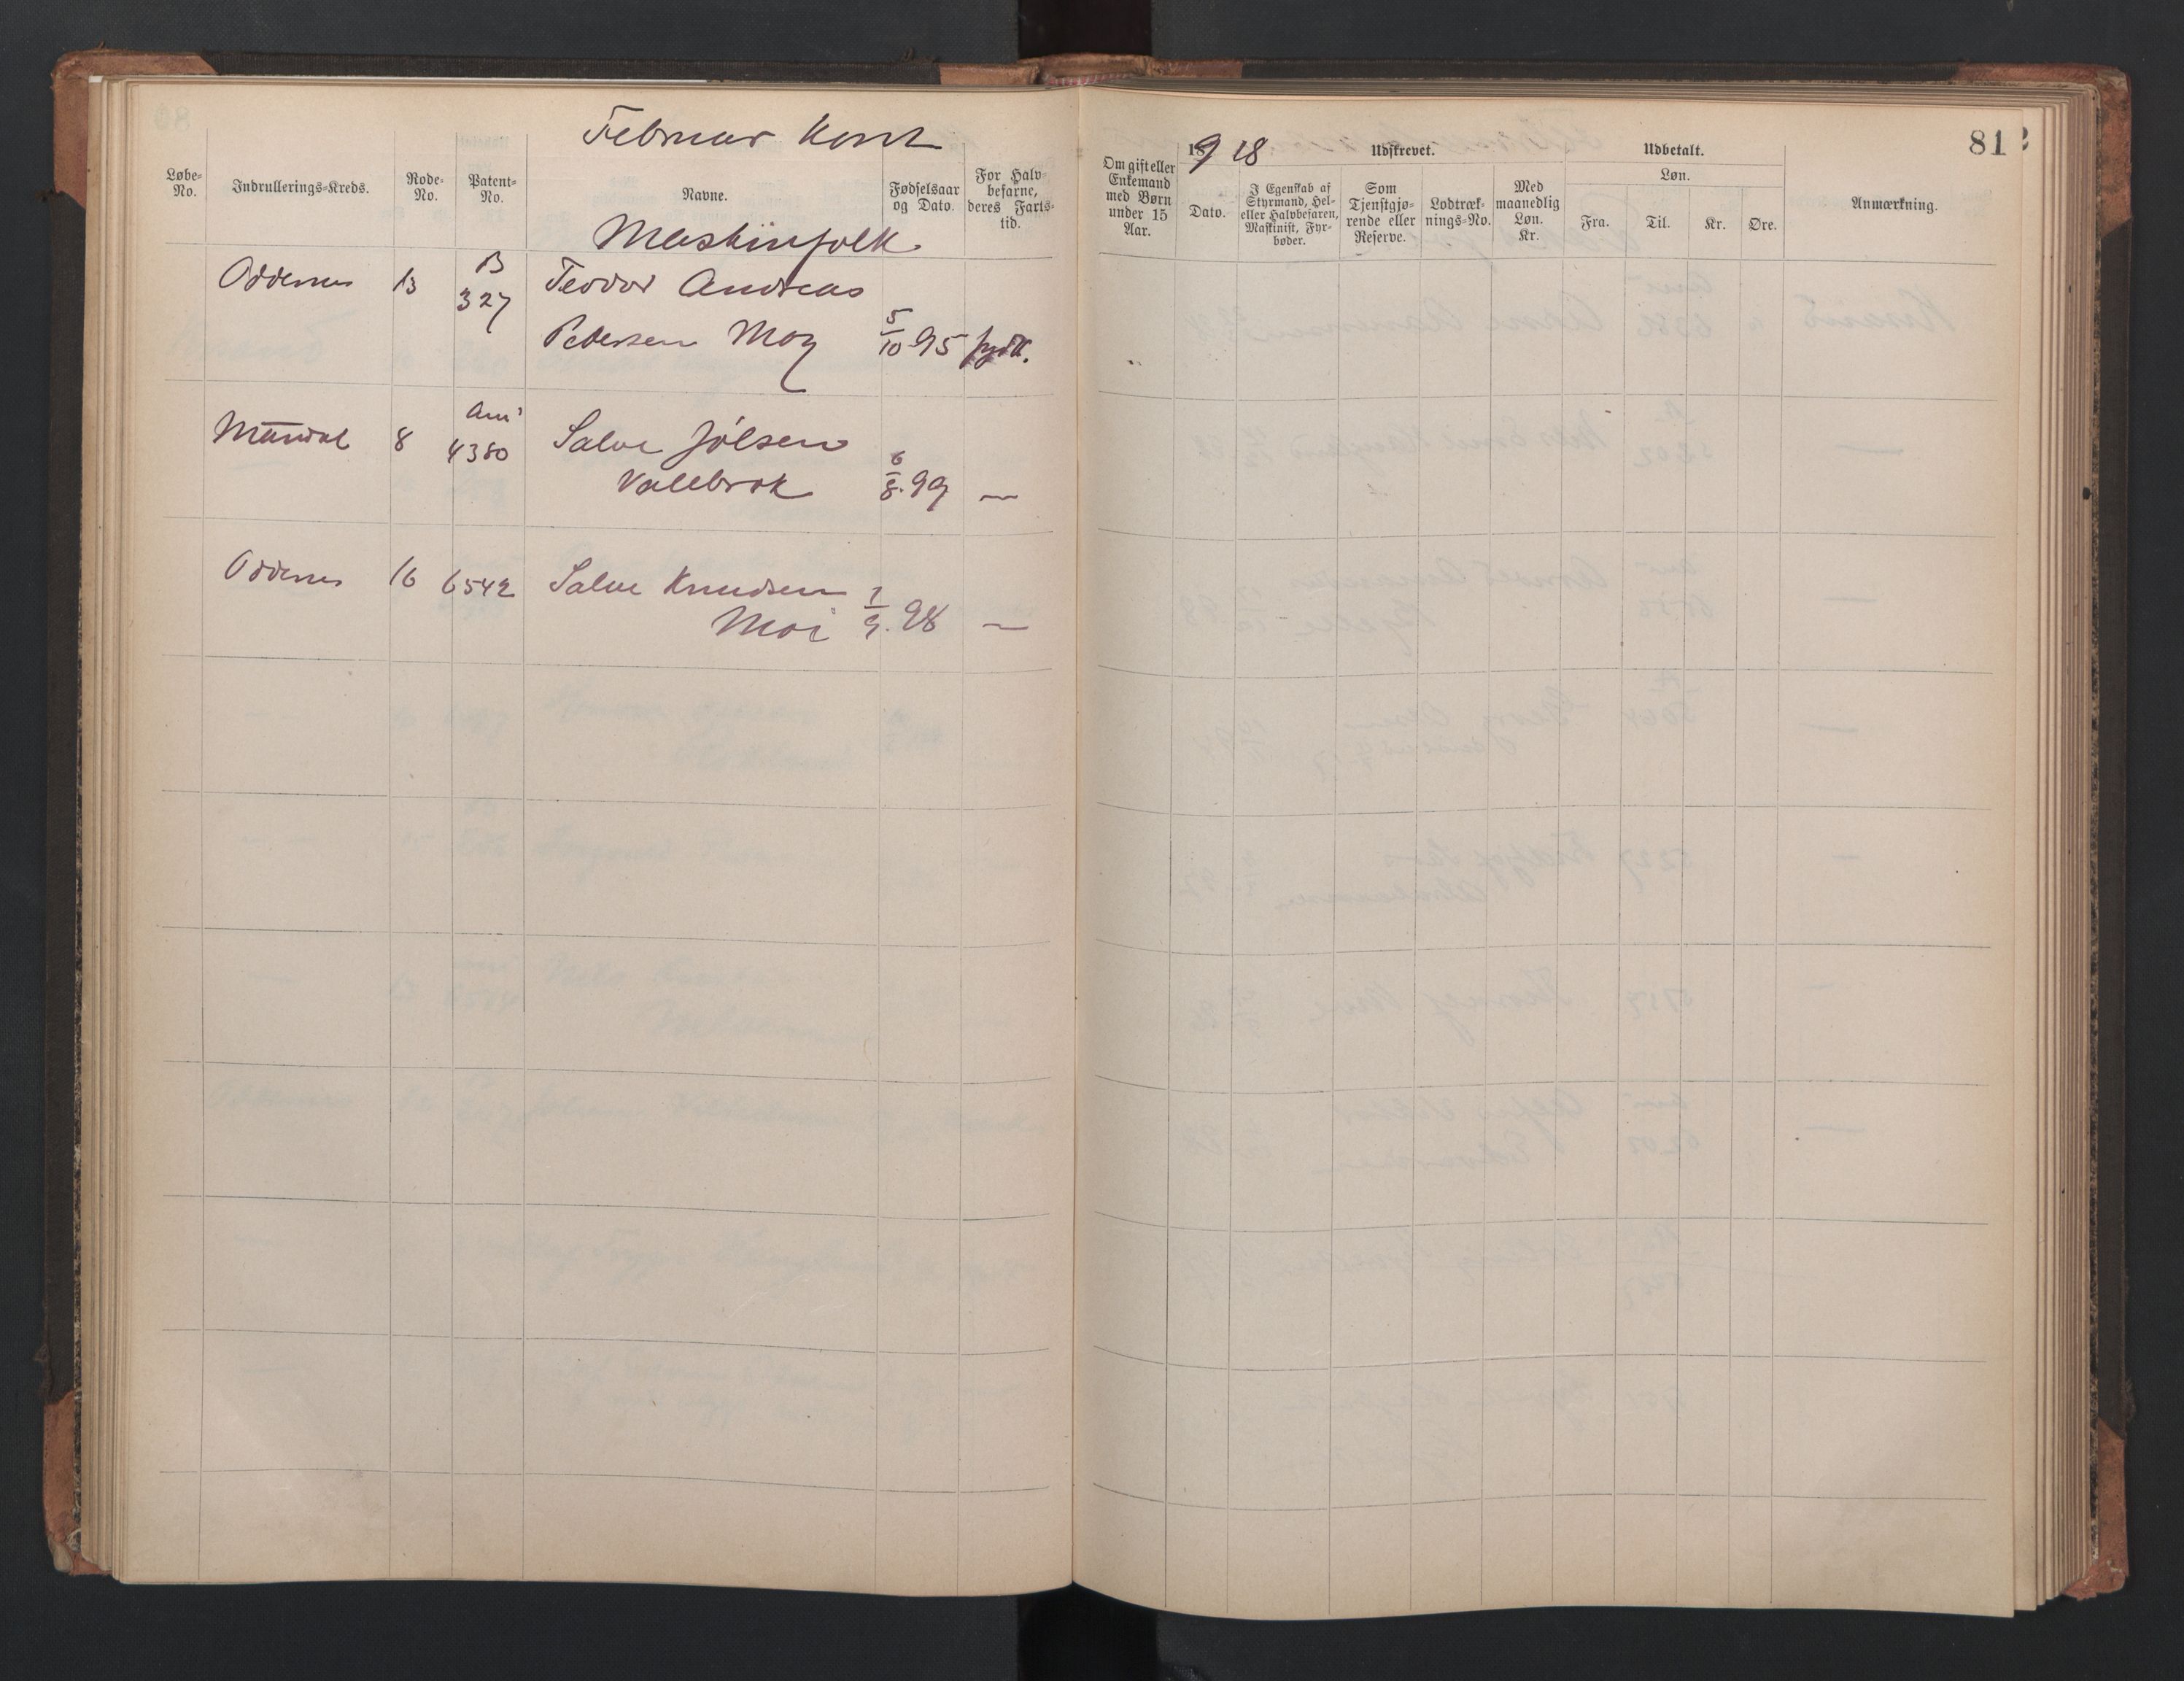 Februar Kont
1918
81
Løbe-No.
Indrullerings-Kreds.
Rode-No.
Patent-No.
Navne.
Fødselsaar og Dato.
For Halvbefarne, deres Farts-tid.
Om gift eller Enkemand med Børn under 15 Aar.
Udskrevet.
Dato.
I Egenskab af Styrmand, Hel- eller Halvbefaren, Maskinist, Fyrbøder.
Som Tjenstgjørende eller Reserve.
Lodtræknings-No.
Med maanedlig Løn. Kr.
Udbetalt.
Løn.
Fra.
Til.
Kr.
Øre.
Anmærkning.
Maskinfolk
Oddernes 13 B 327 Teodor Andreas
Pedersen Moy 5/10 95 fyrb.
Mandal 8 Ani 4380 Salve Jólsen
Vallebrok 6/8. 99 —
Oddernes 16 6542 Salve Knudsen
Moi 1/9. 98 —